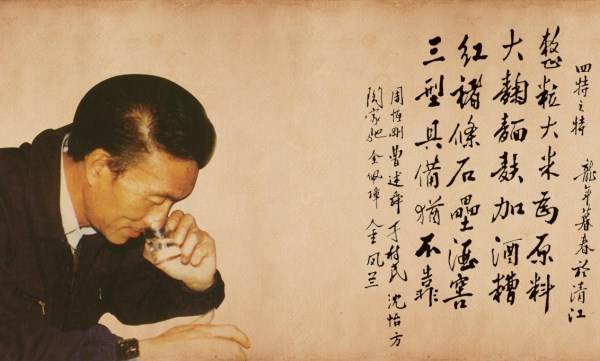 四特之特 龍年暮春於清江
整粒大米為原料
大麴麵麩加酒糟
紅褚條石壘酒窖
三型具備猶不靠
周恆剛 曹述舜 于树民 沈怡方
陶家驰 金佩璋 金凤兰